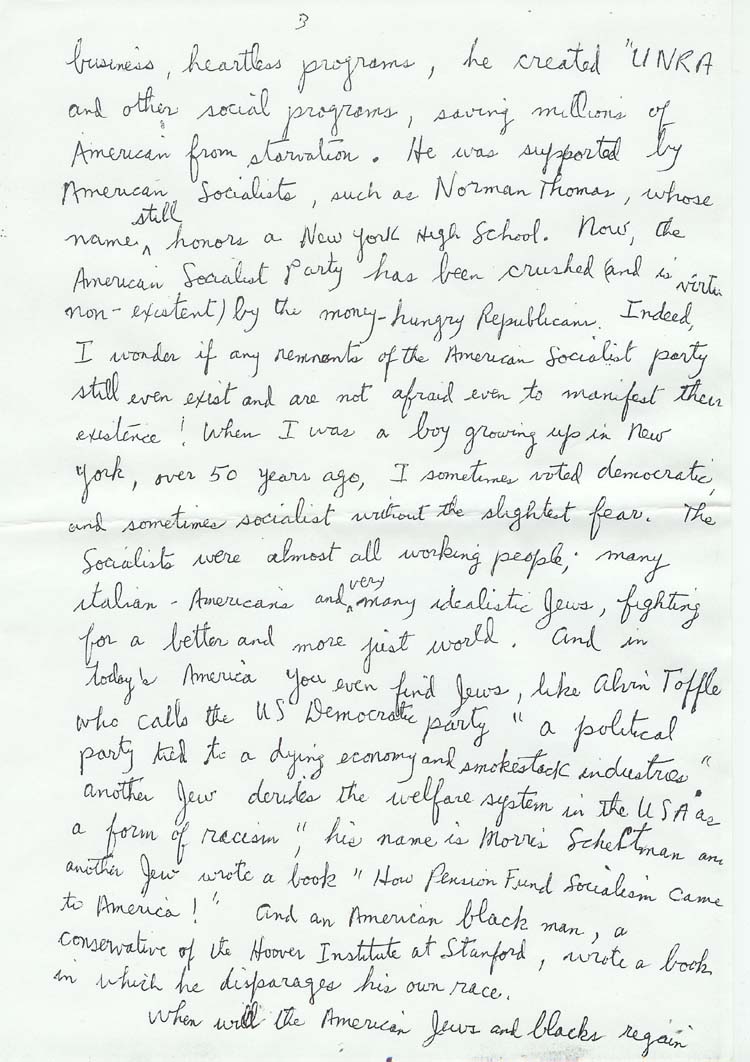 3
business, heartless programs, he created "UNRA
and other social programs, saving millions of
American from starvation. He was supported by
American Socialists, such as Norman Thomas, whose
still
name ^ honors a New York High School. Now, the
American Socialist Party has been crushed (and is virtu
non-existent) by the money-hungry Republicans. Indeed,
I wonder if any remnants of the American Socialist party
still even exist and are not afraid even to manifest their
existence! When I was a boy growing up in New
York, over 50 years ago, I sometimes voted democratic,
and sometimes socialist without the slightest fear. The
Socialists were almost all working people; many
very
italian-Americans and ^ many idealistic Jews, fighting
for a better and more just world. And in
today's America you even find Jews, like Alvin Toffle
who calls the US Democratic party "a political
party tied to a dying economy and smokestack industries"
another Jew derides the welfare system in the USA "as
a form of racism", his name is Morris Scheftman an
another Jew wrote a book "How Pension Fund Socialism came
to America!" And an American black man, a
conservative of the Hoover Institute at Stanford, wrote a book
in which he disparages his own race.
When will the American Jews and blacks regain